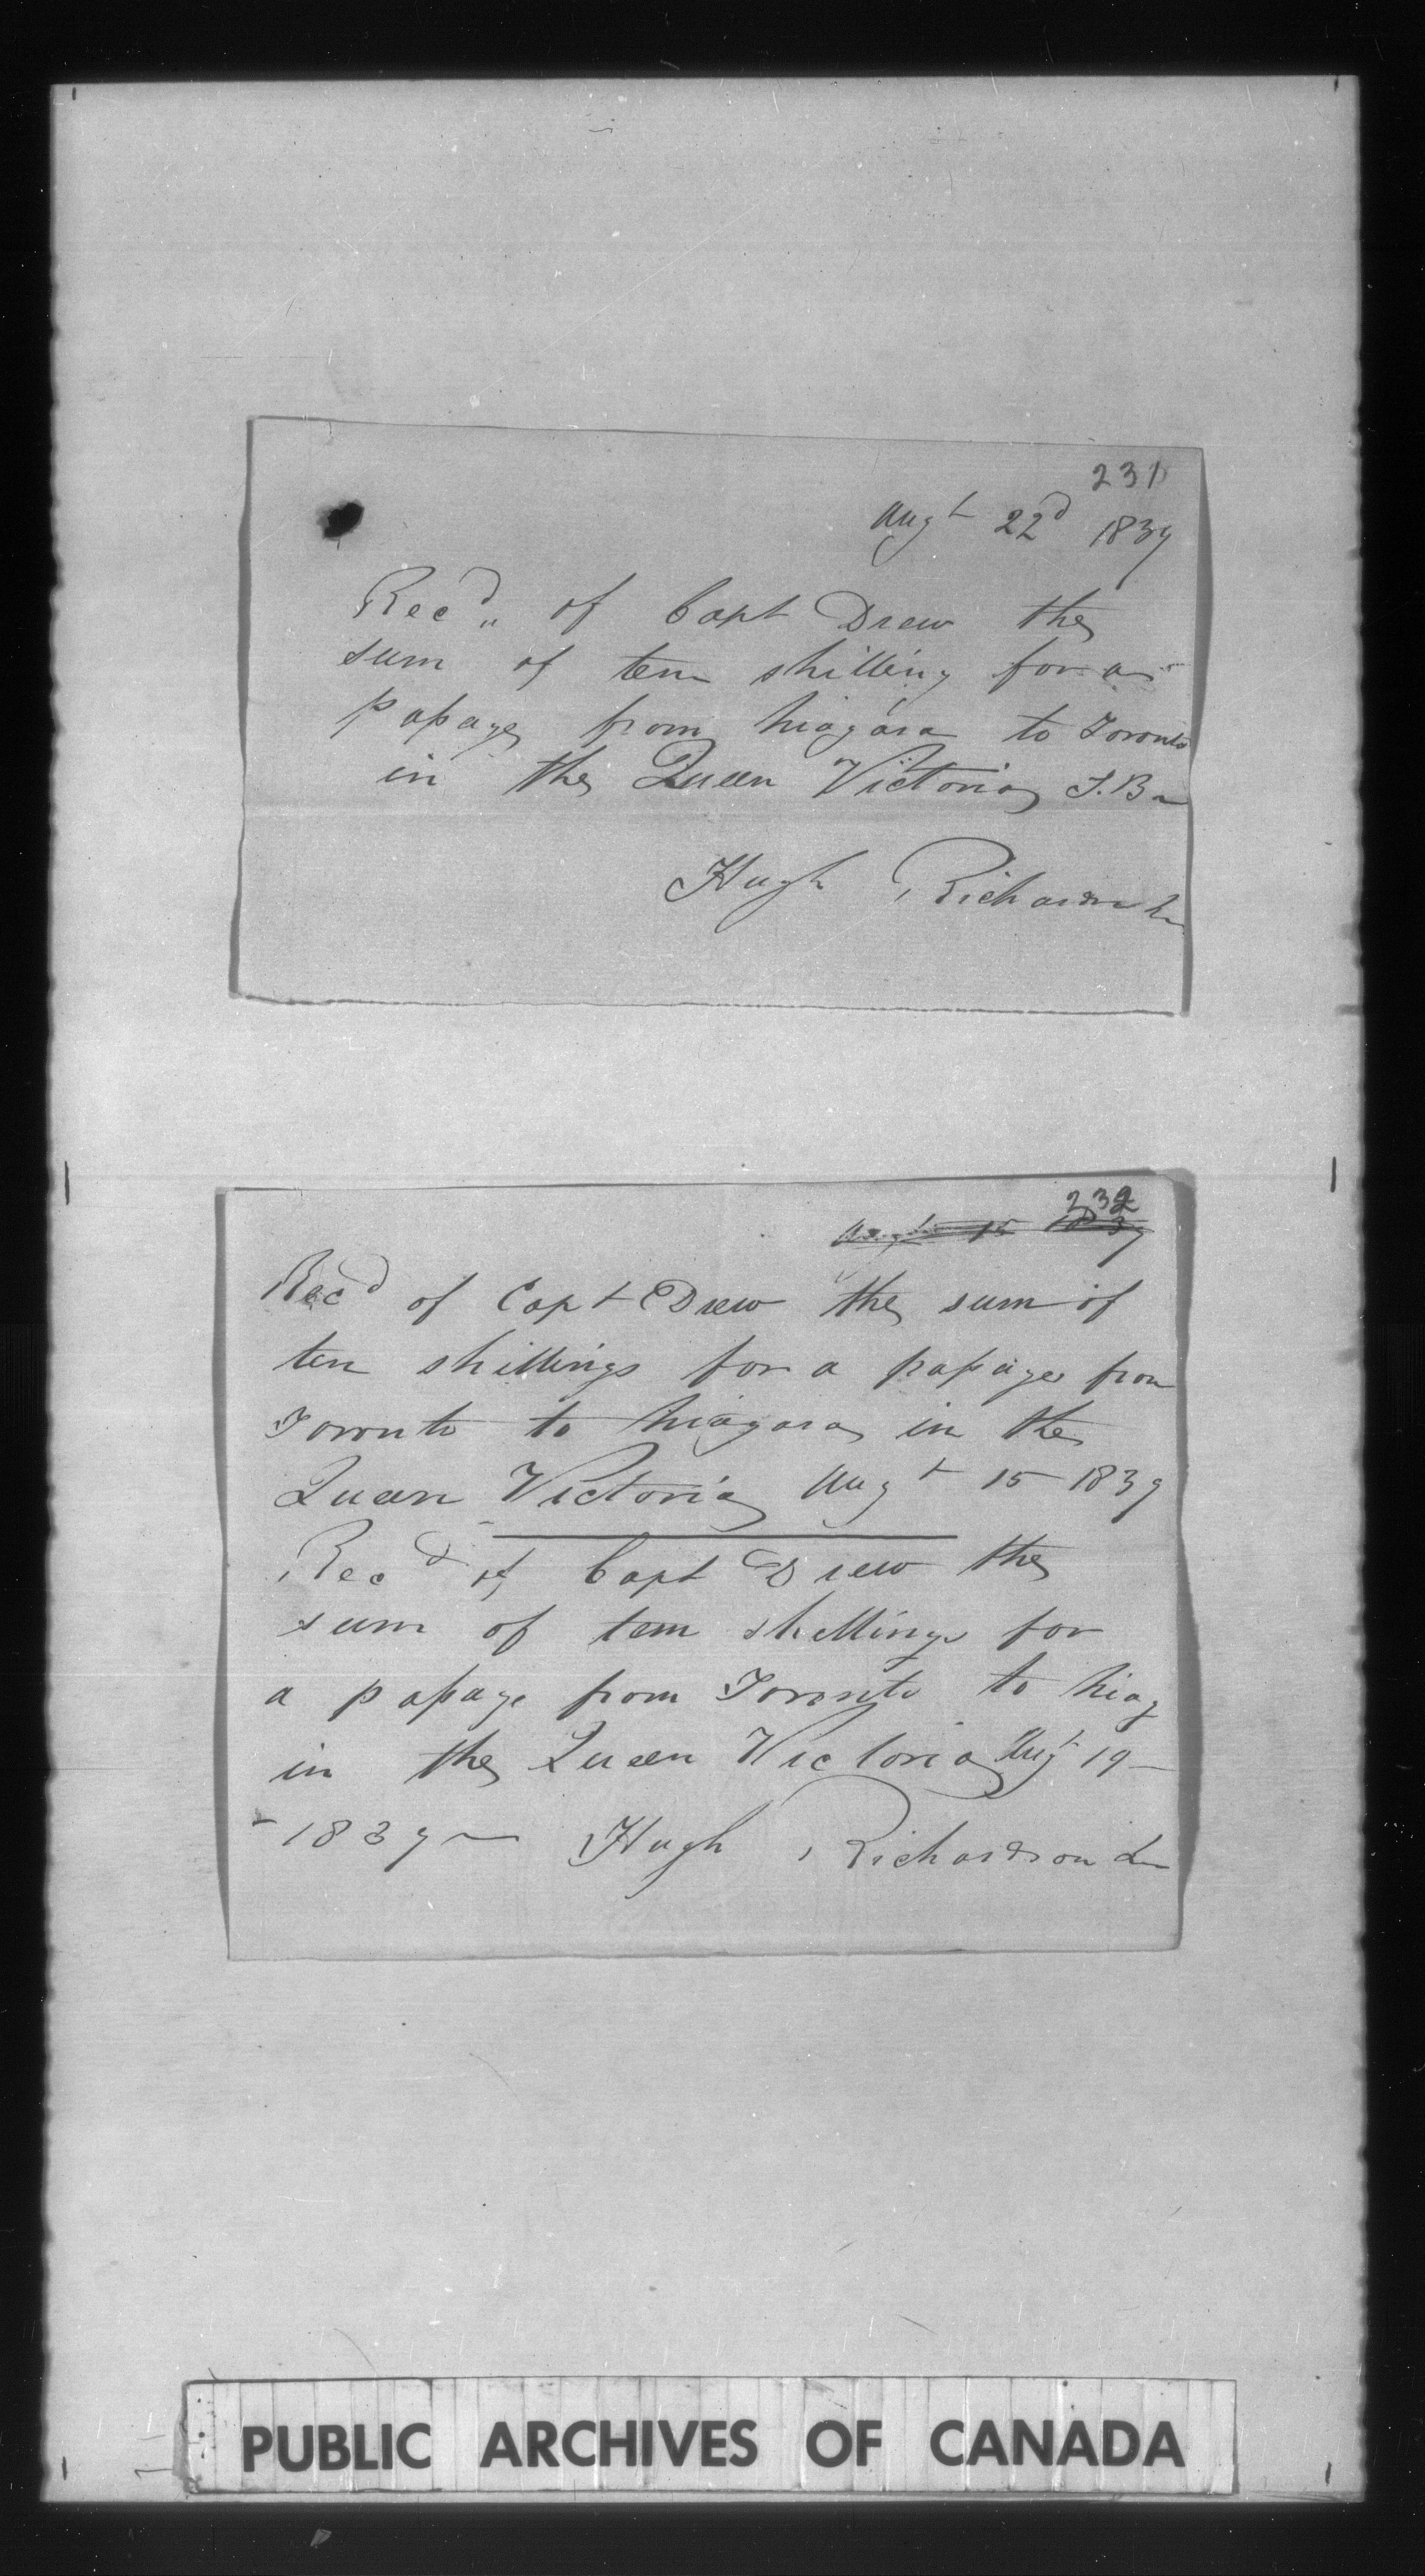 231
Augt 22d 1839
Recd of Capt Drew the
sum of ten shilling for a
passage from Niagara to Toronto
in the Queen Victoria S.B
Hugh Richardson Jr
232
Augt 15 1839
Recd of Capt Drew the sum of
ten shillings for a passage from
Toronto to Niagara in the
Queen Victoria Augt 15 1839
Recd of Capt Drew the
sum of ten shillings for
a passage from Toronto to Niag
in the Queen Victoria Augt 19
1839 Hugh Richardson Jr
PUBLIC ARCHIVES OF CANADA